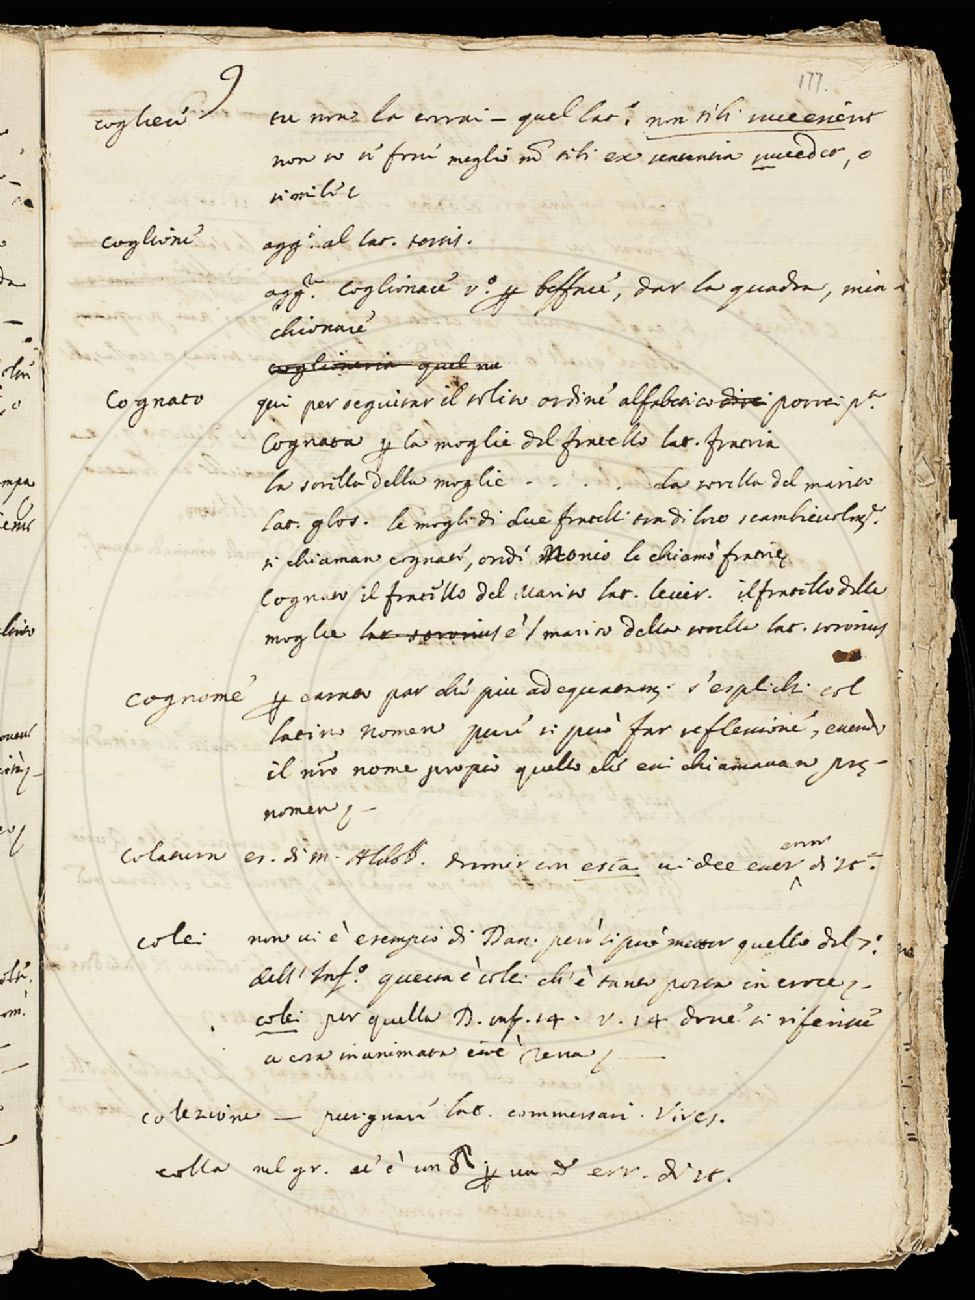 177.
cogliere tu non la corrai – quel lat. non tibi succederet
non so se forse meglio no tibi ex sententia succedet, o
simile
coglione agg. al lat. testis.
agg. coglionare v.o p beffare, dar la quadra, min-
chionare
coglioneria quel
Cognato qui per seguitar il solito ordine alfabetico direi porrei p.a
Cognata p la moglie del fratello lat. fratria
la sorella della moglie . . . . . la sorella del marito
lat. glos. le mogli di due fratelli tra di loro scambievolm.e
si chiaman cognate, onde Nonio le chiamò fratrię
Cognato il fratello del Marito lat. levir. il fratello della
moglie lat sororius è l marito della sorella lat. sororius
cognome p earato par che piu adequatam. s'esplichi col
latino Nomen pure si può far reflessione, essendo
il nro nome proprio quello che essi chiamavan prę-
nomen
colatura es. di M. Aldob. dormir con essa vi dee esser error di st.a
colei non vi è esempio di Dan. però si può metter quello del 7.o
dell' Inf.o questa è colei ch'è tanto posta in croce
colei per quella D. inf. 14. v. 14 dove si riferisce
a cosa inanimata cioè rena
colezione – pusignare lat. commessari. Vives.
colla nel gr. vi è un p un err. di st.